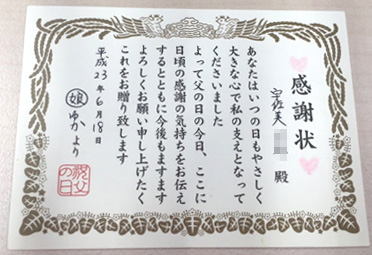 感謝状
宇佐美 殿
あなたはいつの日もやさしく
大きな心で私の支えとなって
くださいました
よって父の日の今日、ここに
日頃の感謝の気持ちをお伝え
するとともに今後もますます
よろしくお願い申し上げたく
これをお贈り致します
平成23年6月18日
娘 ゆか より
祝父の日